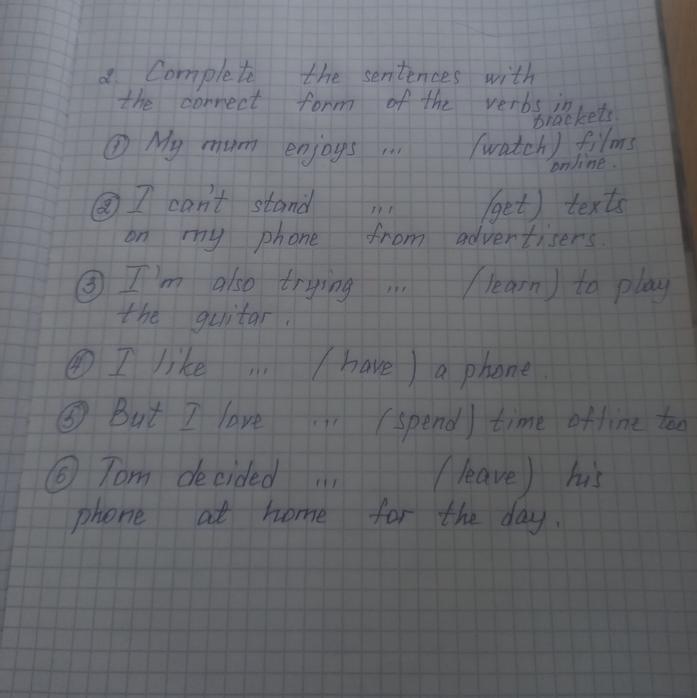 2. Complete the sentences with
the correct form of the verbs in
brackets.
① My mum enjoys ... (watch) films
online.
② I can't stand ... (get) texts
on my phone from advertisers.
③ I'm also trying ... (learn) to play
the guitar.
④ I like ... (have) a phone.
⑤ But I love ... (spend) time offline too
⑥ Tom decided ... (leave) his
phone at home for the day.